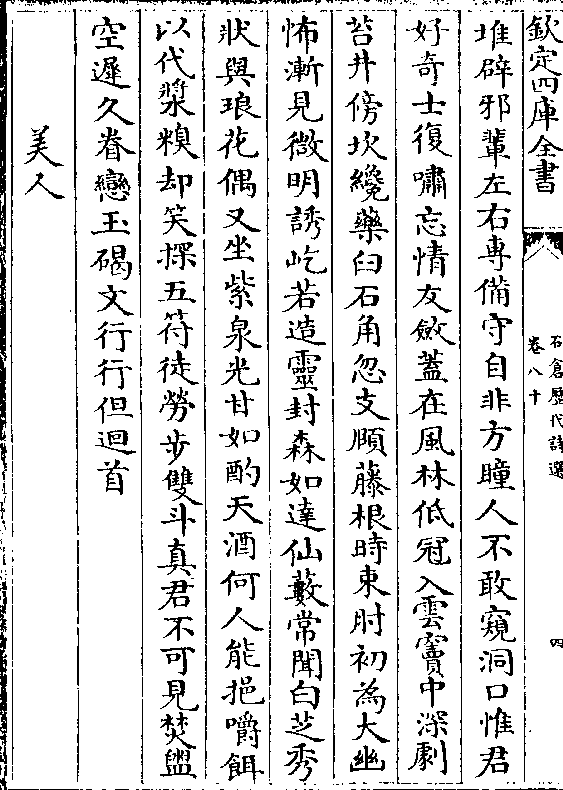 欽定四庫全書
石倉歷代詩選
卷八十
四
堆辟邪輩左右專備守自非方瞳人不敢窺洞口惟君
好奇士復嘯忘情友斂蓋在風林低冠入雲竇中深劇
苔井傍坎纔藥臼石角忽支頤藤根時束肘初為大幽
怖漸見微明誘屹若造靈封森如達仙藪常聞白芝秀
狀與琅花偶又坐紫泉光甘如酌天酒何人能挹嚼餌
以代漿糗却笑探五符徒勞步雙斗真君不可見焚盥
空遲久眷戀玉碣文行行但迴首
美人